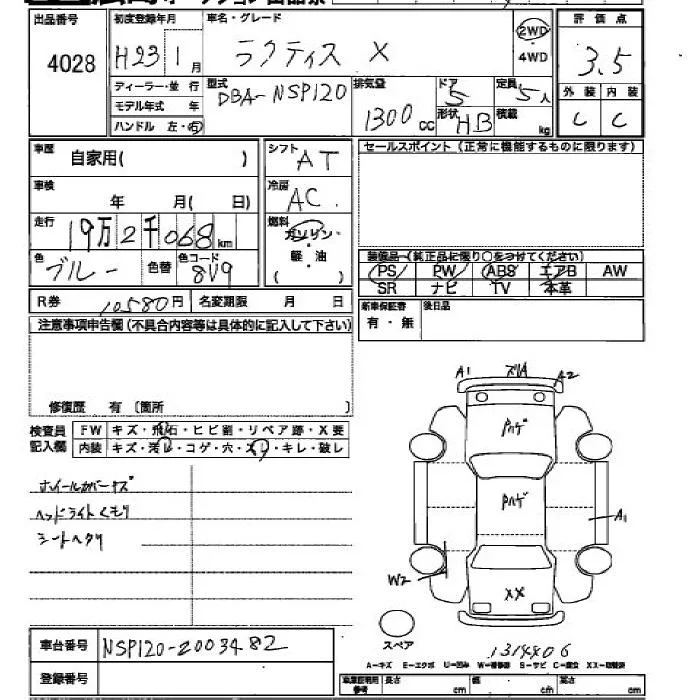 出品番号 4028
初度登録年月 H23 1月
車名・グレード ラクティス X
2WD
4WD
評価点 3.5
外装 内装
C C
ディーラー・並 行
モデル年式 年
ハンドル 左・右
型式 DBA-NSP120
排気量 1300 cc
ドア 5
定員 5人
形状 HB
積載 kg
車歴 自家用( )
シフト AT
セールスポイント (正常に機能するものに限ります)
車検 年 月( 日)
冷房 AC
走行 19万2千068km
燃料 ガソリン・
軽・油
( )
色 ブルー 色替 色コード 8V9
装備品 (純正品に限り○をつけてください)
PS PW ABS エアB AW
SR ナビ TV 本革
R券 10580円 名変期限 月 日
新車保証書 有・無
後日品
注意事項申告欄 (不具合内容等は具体的に記入して下さい)
修復歴 有 〔箇所 〕
検査員記入欄
FW キズ・飛石・ヒビ割・リペア跡・X要
内装 キズ・汚れ・コゲ・穴・スリ・キレ・破レ
ホイールカバーキズ
ヘッドライトくもり
シートヘタリ
A1 ズリA A2
Pハゲ
Pハゲ
A1
W2
XX
スペア
1314406
車台番号 NSP120-2003482
登録番号
A―キズ E―エクボ U―凹み W―補修跡 S―サビ C―腐食 XX―取替済
長さ cm 幅 cm 高さ cm